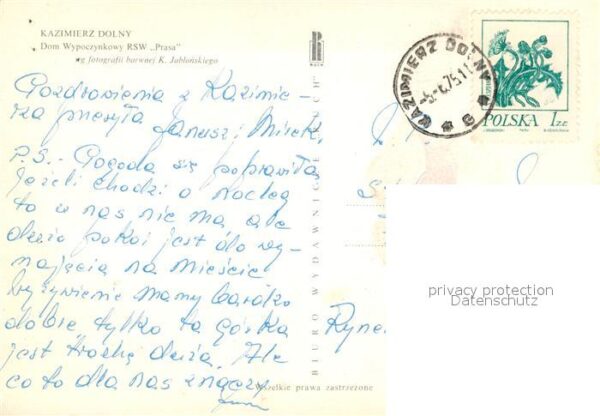 KAZIMIERZ DOLNY
Dom Wypoczynkowy RSW „Prasa"
wg fotografii barwnej K. Jabłońskiego
Pozdrowienia z Kazimie-
rza przesyła Janusz i Mirek
P.S. - Pogoda się poprawiła
jeżeli chodzi o nocleg
to u nas nie ma ale
dużo pokoi jest do wy-
najęcia na mieście
wyżywienie mamy bardzo
dobre tylko ta górka
jest troche duża. Ale
co to dla nas znaczy
BIURO WYDAWNICZE „RUCH"
Wszelkie prawa zastrzeżone
KAZIMIERZ DOLNY
POLSKA 1 ZŁ
Rynek
privacy protection
Datenschutz